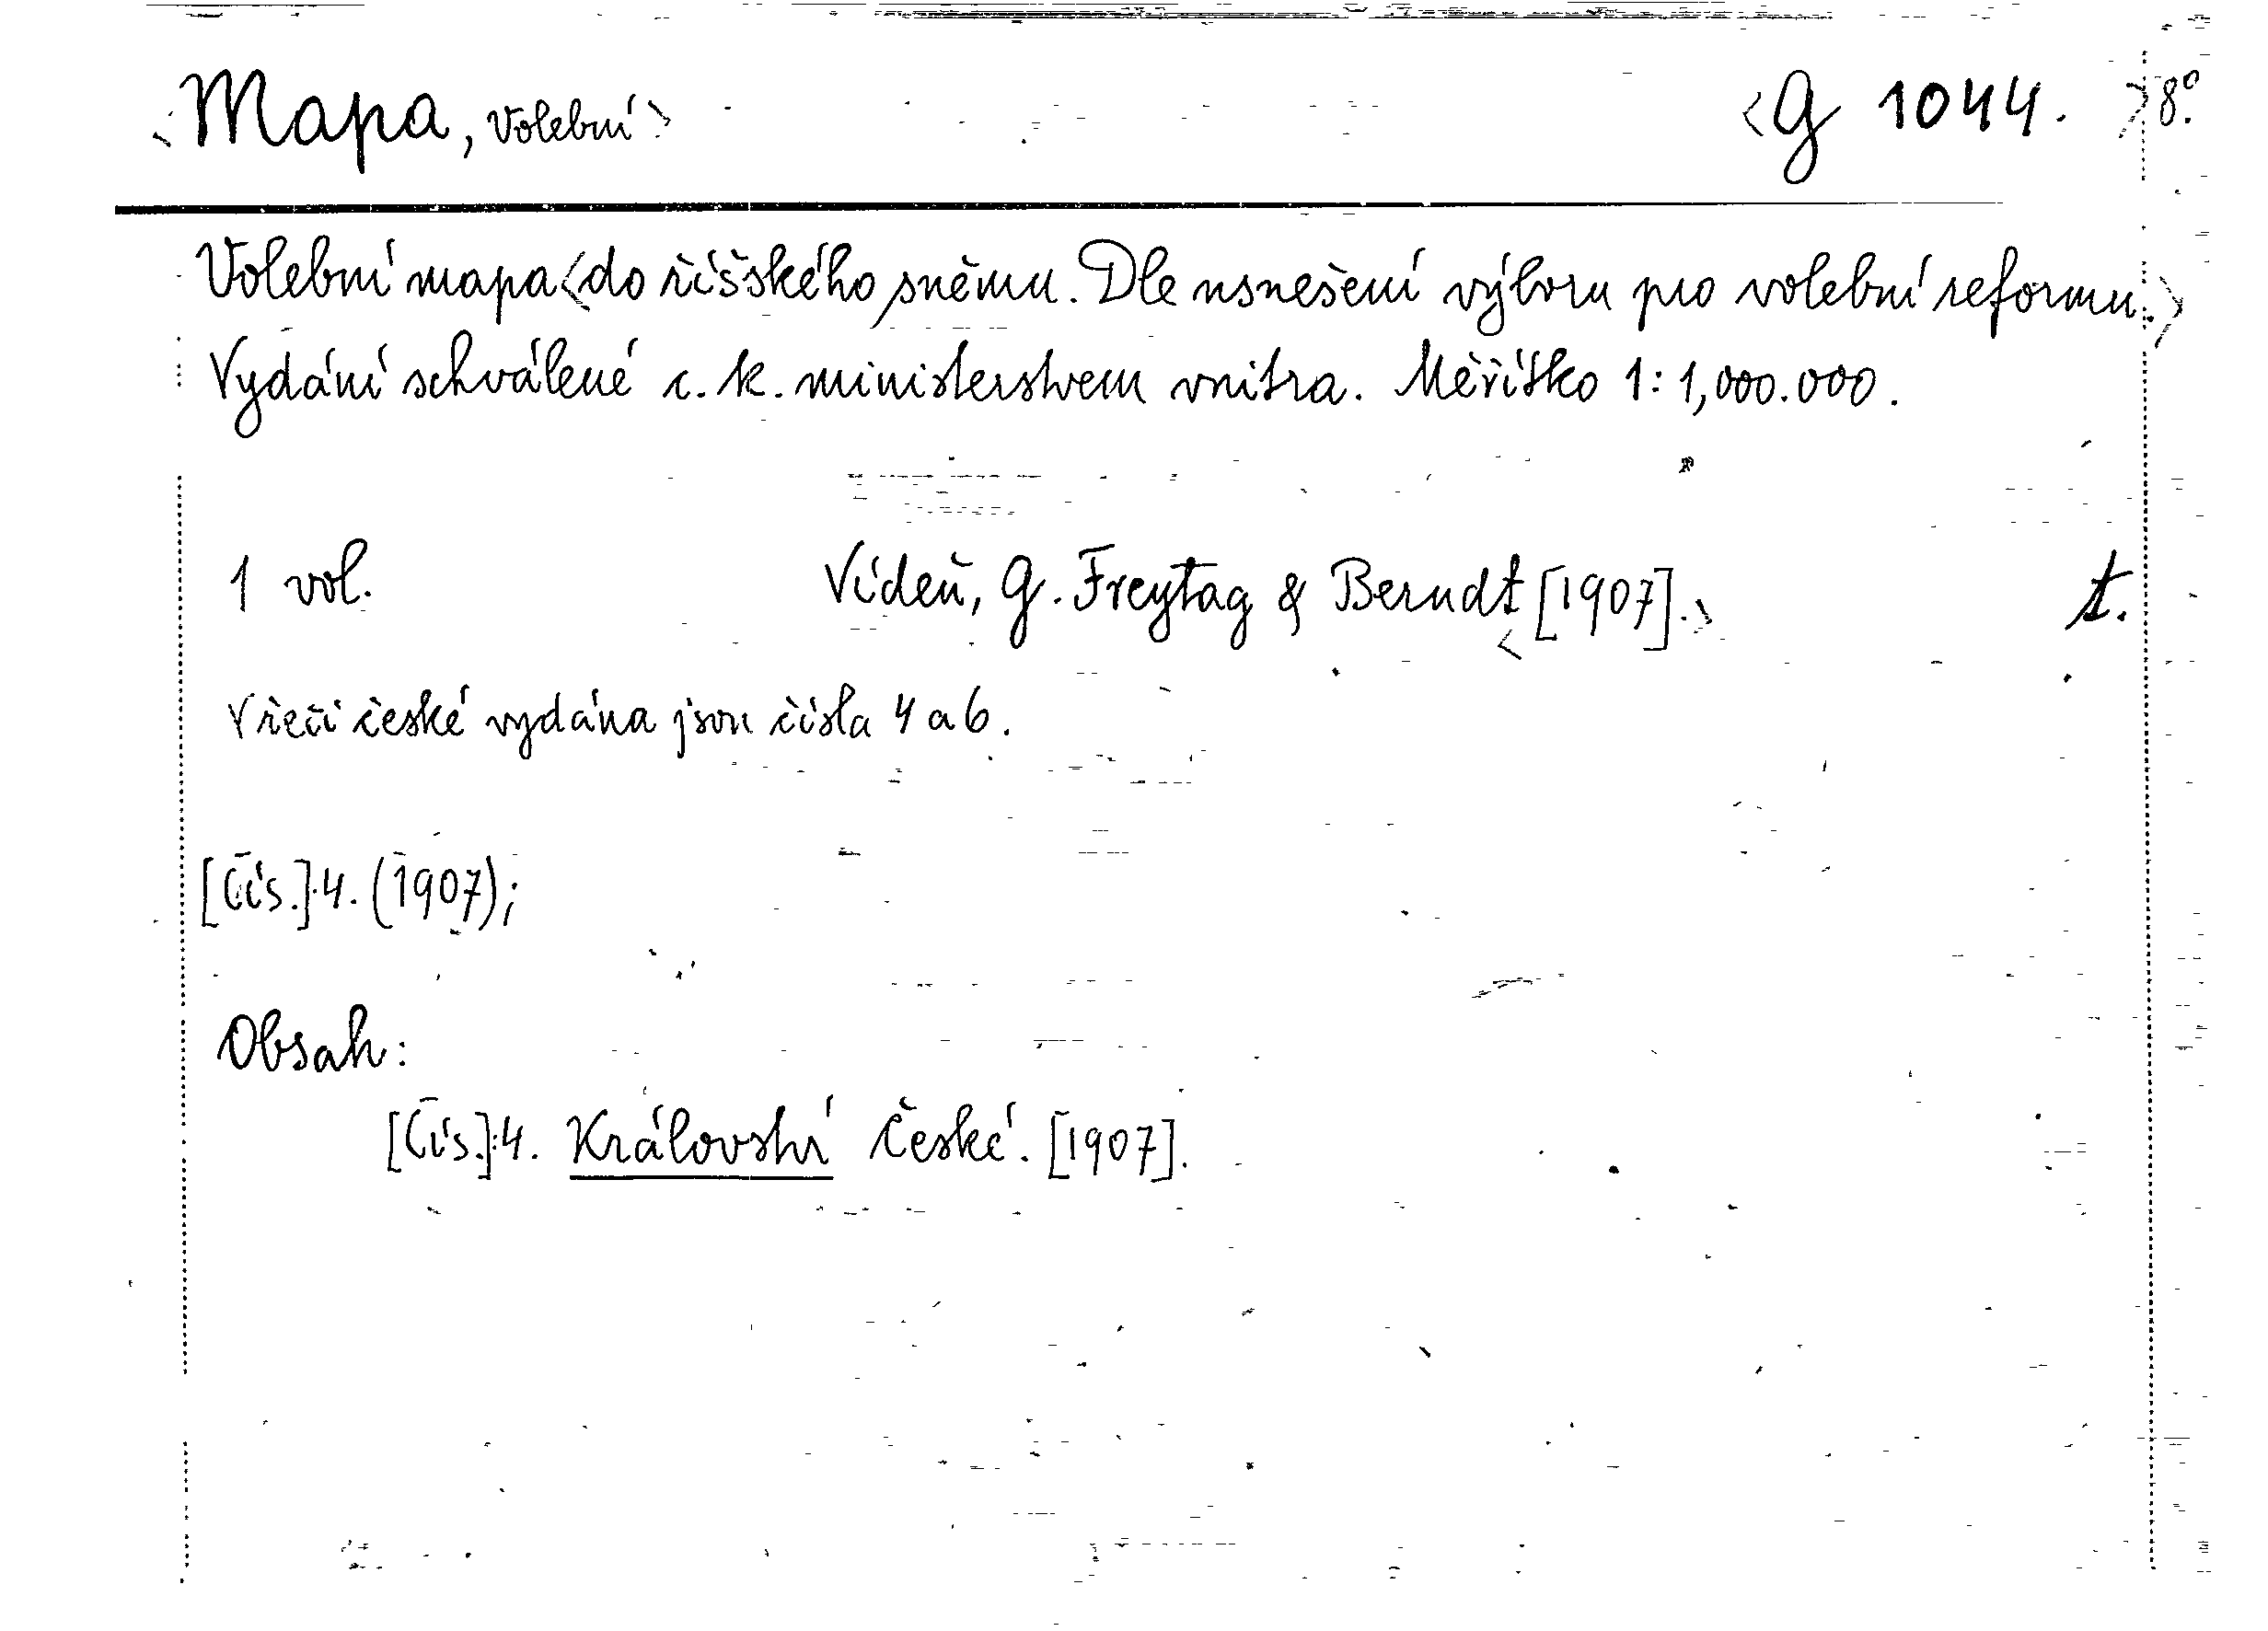 <Mapa, Volební> <G 1044. > 8°.
Volební mapa <do říšského sněmu. Dle usnešení výboru pro volební reformu.>
Vydání schválené c. k. ministerstvem vnitra. Měřítko 1:1,000.000.
1 vol. Vídeň, G. Freytag & Berndt <[1907].> t.
V řeči české vydána jsou čísla 4 a 6.
[Čís.] 4. (1907);
Obsah:
[Čís.] 4. Království České. [1907].